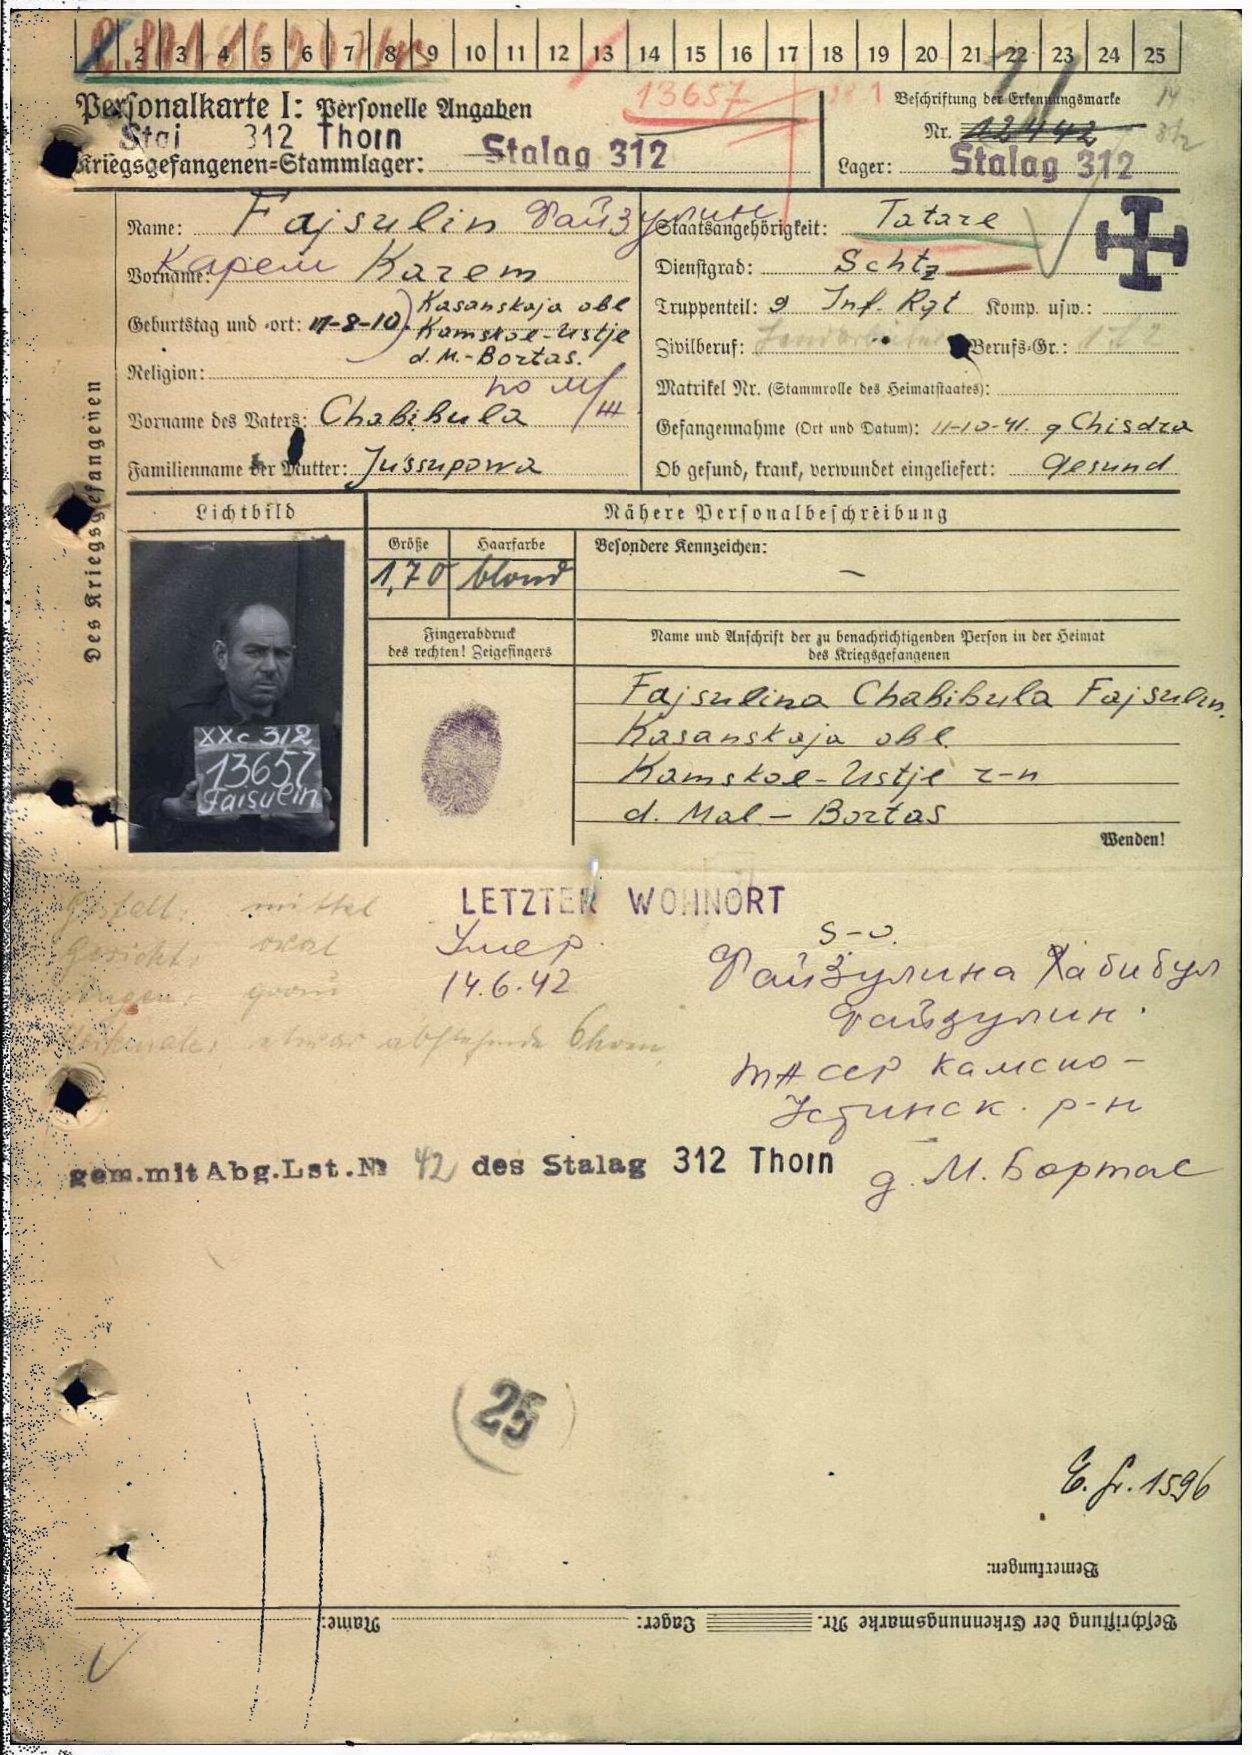 1 2 3 4 5 6 7 8 9 10 11 12 13 14 15 16 17 18 19 20 21 22 23 24 25
Personalkarte I: Personelle Angaben
13657
Beschriftung der Erkennungsmarke
312 Thorn
Nr. 12442
Kriegsgefangenen=Stammlager: Stalag 312
Lager: Stalag 312
Des Kriegsgefangenen
Name: Fajsulin Файзулин
Vorname: Карем Karem
Geburtstag und -ort: 17-8-10, Kasanskaja obl
Kamskoe-Ustje
d. M.-Bortas.
Religion:
Vorname des Vaters: Chabibula
Familienname der Mutter: Jussupowa
Staatsangehörigkeit: Tatare
Dienstgrad: Schtz
Truppenteil: 9 Inf. Rgt Komp. usw.:
Zivilberuf: Berufs=Gr.: 172
Matrikel Nr. (Stammrolle des Heimatstaates):
Gefangennahme (Ort und Datum): 11-10-41. g Chisdra
Ob gesund, krank, verwundet eingeliefert: gesund
Lichtbild
Nähere Personalbeschreibung
Größe
1,70
Haarfarbe
blond
Besondere Kennzeichen: —
XXc 312
13657
Faisulin
Fingerabdruck
des rechten! Zeigefingers
Name und Anschrift der zu benachrichtigenden Person in der Heimat
des Kriegsgefangenen
Fajsulina Chabibula Fajsulin.
Kasanskaja obl.
Kamskoe-Ustje r-n
d. Mal-Bortas
Wenden!
LETZTER WOHNORT
Gestalt: mittel
Gesicht: oval
Augen: grau
Merkmale: etwas abstehende Ohren
Умер.
14.6.42
Файзулина Хабибул
Файзулин.
ТАССР Камско-
Устинск. р-н
д. М. Бортас
gem.mit Abg.Lst.№ 42 des Stalag 312 Thorn
25
1596
Bemerkungen:
Beschriftung der Erkennungsmarke Nr. Lager: Name: